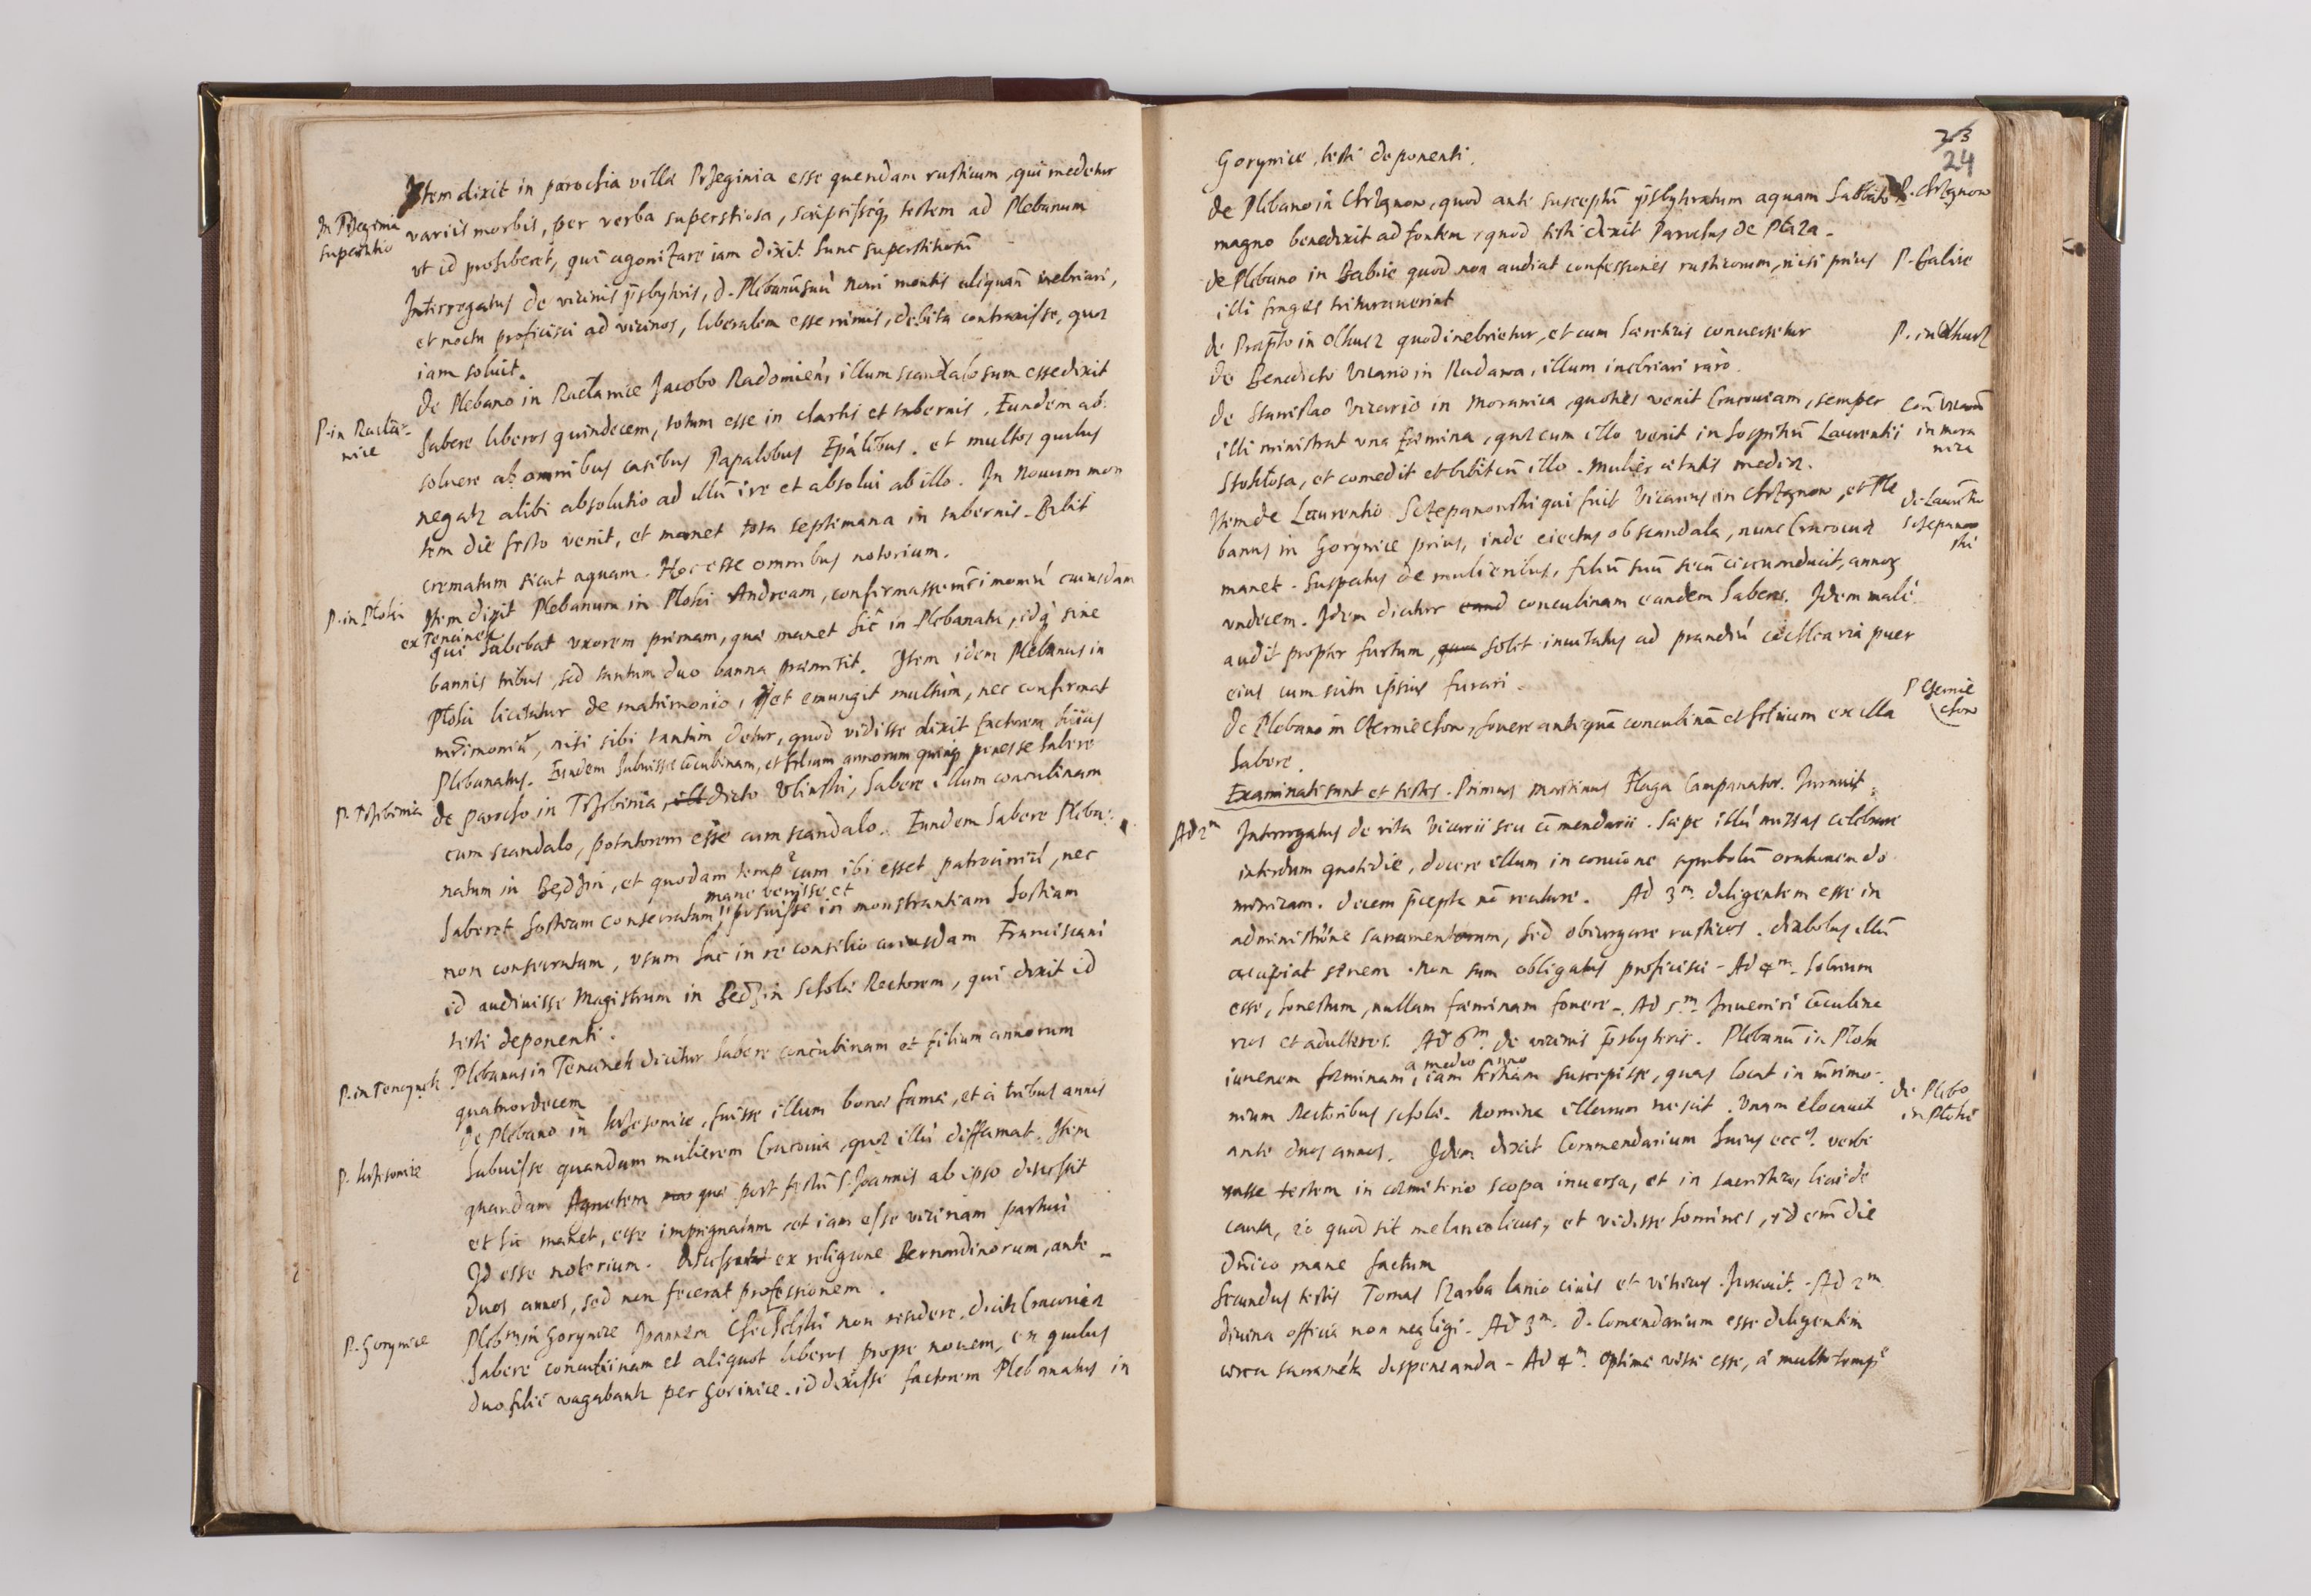 Item dixit in parochia villae Przeginia esse quendam rusticum, qui medetur
In Przeginia
superstitio
variis morbis, per verba superstiosa, scripsisseq testem ad Plebanum
vt id prohiberet, qui agonizare iam dixit hunc superstitiosū
Interrogatus de vicinis p̄sbyteris, d. Plebanū suū Noui montis aliquan̄ inebriari,
et noctu proficisci ad vicinos, liberalem esse nimis, debita contraxisse, quae
iam soluit.
P. in Racła-
nice
De Plebano in Racławice Jacobo Radomień, illum scandalosum esse dixit
habere liberos quindecem, totum esse in chartis et tabernis. Eundem ab-
soluere ab omnibus casibus Papalibus Epālibus. et multos quibus
negatr alibi absolutio ad illū ire et absolui ab illo. In Nouum mon
tem die festo venit, et manet tota septimana in tabernis. Bibit
crematum sicut aquam. Hoc esse omnibus notorium.
P. in Płoki
Item dixit Plebanum in Płoki Andream, confirmasse mr̄imoniū cuiusdam
ex Tencinek
qui habebat vxorem primam, quae manet hic in Plebanatu, idq̄ sine
bannis tribus, sed tantum duo banna praemitit. Item idem Plebanus in
Płoki licitatur de matrimonio, et emungit multum, nec confirmat
mr̄imoniū, nisi sibi tantum detur, quod vidisse dixit factorem huius
Plebanatus. Eundem habuisse cōcubinam, et filium annorum quinq penes se habere
P. Trzebinia
de parocho in Trzebinia, dicto Vlinski, habere illum concubinam
cum scandalo, potatorem esse cum scandalo. Eundem habere Pleba-
natum in Będzin, et quodam temp̄e cum ibi esset patrociniū, nec
mane venisse et
haberet hostiam consecratam, posuisse in monstrantiam hostiam
non consecratam, vsum hac in re consilio cuiusdam Franciscani
id audiuisse Magistrum in Będzin Scholae Rectorem, qui dixit id
testi deponenti.
P. in Tencynek
Plebanus in Tencinek dicitur habere concubinam et filium annorum
quatuordecem
P. krzesonice
de Plebano in krzesonice, fuisse illum bonae famae, et a tribus annis
habuisse quandam mulierem Cracouia, quae illū diffamat. Item
quandam Agnetem quae post festū S. Joannis ab ipso discessit
et hic manet, esse impregnatam et iam esse vicinam partui
Id esse notorium. Discessit ex religione Bernardinorum, ante
duos annos, sed non fecerat professionem.
P. Gorynice
Plebm̄ in Gorynice Joannem Chechelski non residere. dicit Cracouiae
habere concubinam et aliquot liberos prope nouem, ex quibus
duo filii vagabantr per Gorinice. id dixisse factorem Plebanatus in
23
24
Gorynice, testi deponenti.
de Plebano in Chrzanow, quod ante susceptū p̄sbyteratum aquam Sabbato
P. Chrzanow
magno benedixit ad fontem, quod testi dixit Parochus de Płaza.
de Plebano in Babice quod non audiat confessiones rusticorum, nisi prius
P. Babice
illi fruges triturauerint
de Praep̄to in Olkusz quod inebrietur, et cum haereticis conuersetur
P. in Olkusz
de Benedicto Vicario in Rudawa, illum inebriari raro.
de Stanislao Vicario in Morawica, quoties venit Cracouiam, semper
Con̄ vicariū
in mora
wica
illi ministrat vna foemina, quae cum illo venit in hospitiū Laurentii
Stoklosa, et comedit et bibit cū illo. Mulier aetatis mediae.
Item de Laurentio Sczepanowski qui fuit Vicarius in Chrzanow, et Ple
de Laurētio
Sczepanow
ski
banus in Gorynice prius, inde eiectus ob scandala, nunc Cracouiae
manet. Suspectus de mulieribus, filiū suū secū circumducit, annorū
vndecem. Idem dicitur concubinam eandem habere. Idem male
audit propter furtum, solet inuitatus ad prandiū cochlearia puer
eius cum scitu ipsius furari.
de Plebano in Czerniechow, fouere antiquā concubinā et filium ex illa
P Czernie
chow
habere.
Examinati sunt et testes. Primus Martinus Flaga Campanator. Jurauit.
Ad 2m
Interrogatus de vita Vicarii seu cōmendarii. Saepe illū missas celebrare
interdum quotidie, docere illum in concione symbolū orationem do
minicam. decem p̄cepta nō recitare. Ad 3m. diligentem esse in
administrōne sacramentorum, sed obiurgare rusticos. diabolus illū
accipiat senem. non sum obligatus proficisci. Ad 4m. Sobrium
esse, honestum, nullam foeminam fouere. Ad 5m. Inueniri cōcubina
rios et adulteros. Ad 6m. de vicinis p̄sbyteris. Plebanū in Płoki
a medio anno
iuuenem foeminam, iam tertiam suscepisse, quas locat in mr̄imo-
nium Rectoribus scholae. Nomina illarum nescit. Vnam elocauit
de Plebo
in Płoki
ante duos annos. Idem dixit Commendarium huius eccae verbe
rasse testem in coemiterio scopa inuersa, et in sacristia, leui de
causa, eo quod sit melancolicus, et vidisse homines, id em̄ die
Dn̄ico mane factum
Secundus testis Tomas Skarba lanio ciuis et vitricus. Jurauit. Ad 2m
diuina officia non negligi. Ad 3m. d. Comendarium esse diligentem
circa sacramēta dispensanda. Ad 4m. Optimae vitae esse, a multo temp̄e